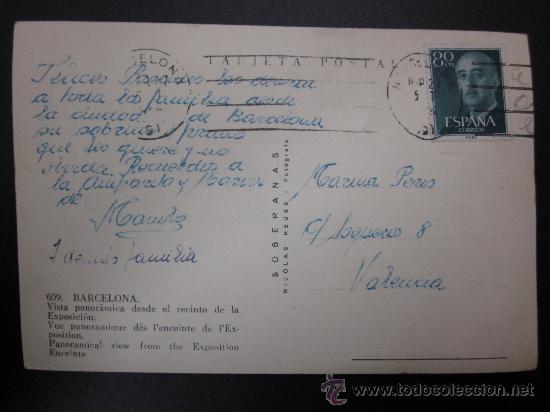 TARJETA POSTAL
80 CTS
ESPAÑA
CORREOS
Felices Pascuas les desean
a toda la familia desde
la ciudad de Barcelona
su sobrino y primo
que les quiere y no
olvida. Recuerdos a
la Amparito y
de.
Manolo
y demás familia
Marina Peris
C/ 8
Valencia
SOBERANAS
NICOLAS REUSS - Fotógrafo
609. BARCELONA.
Vista panorámica desde el recinto de la
Exposición.
Vue panoramique dès l'enceinte de l'Ex-
position.
Panoramical view from the Exposition
Enceinte
todocoleccion
www.todocoleccion.net